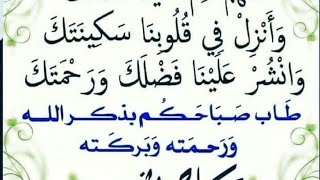 وَأَنْزِلْ فِي قُلُوبِنَا سَكِينَتَكَ
وَانْشُرْ عَلَيْنَا فَضْلَكَ وَرَحْمَتَكَ
طَاب صَبَاحَكُم بذكر الله
وَرَحمَته وَبَركَته